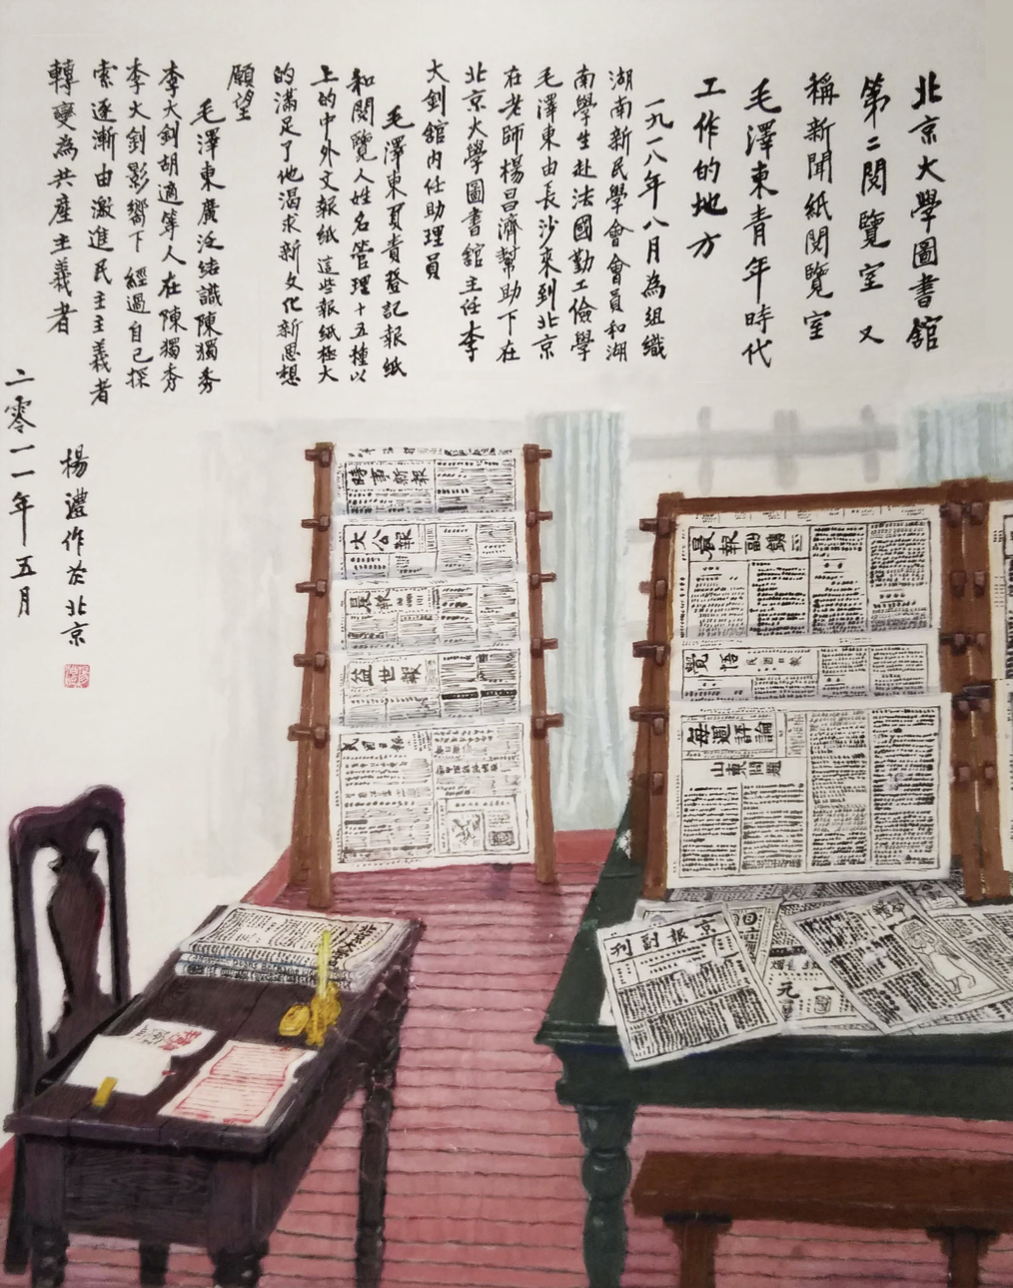 北京大學圖書舘
第二閱覽室 又
稱新聞紙閱覽室
毛澤東青年時代
工作的地方
一九一八年八月為組織
湖南新民學會會員和湖
南學生赴法國勤工儉學
毛澤東由長沙來到北京
在老師楊昌濟幫助下在
北京大學圖書舘主任李
大釗舘內任助理員
毛澤東負責登記報紙
和閱覽人姓名管理十五種以
上的中外文報紙這些報紙極大
的滿足了他渴求新文化新思想
願望
毛澤東廣泛結識陳獨秀
李大釗胡適等人在陳獨秀
李大釗影嚮下 經過自己探
索逐漸由激進民主主義者
轉變為共產主義者
二零一一年五月
楊澧作於北京
時事新報
大公報
晨報
益世報
民國日報
晨報副鐫
覺悟
民國日報
每週評論
山東問題
京報副刊
元一